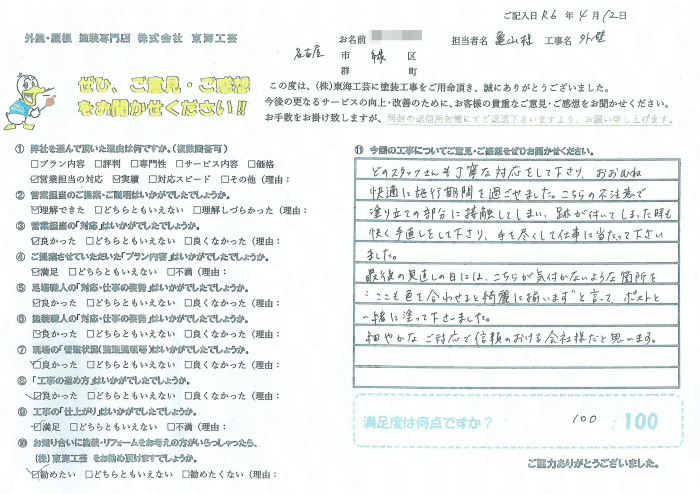 ご記入日 R6 年 4 月 12 日
外壁・屋根 塗装専門店 株式会社 東海工芸
お名前
担当者名 亀山様 工事名 外壁
名古屋 市 緑 区
郡 町
ぜひ、ご意見・ご感想
をお聞かせください!!
この度は、(株)東海工芸に塗装工事をご用命頂き、誠にありがとうございました。
今後の更なるサービスの向上・改善のために、お客様の貴重なご意見・ご感想をお聞かせください。
お手数をお掛け致しますが、同封の返信用封筒にてご返送下さいますよう、お願い申し上げます。
① 弊社を選んで頂いた理由は何ですか。(複数回答可)
□プラン内容 □評判 □専門性 □サービス内容 □価格
☑営業担当の対応 ☑実績 □対応スピード □その他(理由:
② 営業担当のご提案・ご説明はいかがでしたでしょうか。
☑理解できた □どちらともいえない □理解しづらかった(理由:
③ 営業担当の「対応」はいかがでしたでしょうか。
☑良かった □どちらともいえない □良くなかった(理由:
④ ご提案させていただいた「プラン内容」はいかがでしたでしょうか。
☑満足 □どちらともいえない □不満(理由:
⑤ 足場職人の「対応・仕事の姿勢」はいかがでしたでしょうか。
☑良かった □どちらともいえない □良くなかった(理由:
⑥ 塗装職人の「対応・仕事の姿勢」はいかがでしたでしょうか。
☑良かった □どちらともいえない □良くなかった(理由:
⑦ 現場の「管理状況(整理整頓等)はいかがでしたでしょうか。
☑良かった □どちらともいえない □良くなかった(理由:
⑧ 「工事の進め方」はいかがでしたでしょうか。
☑良かった □どちらともいえない □良くなかった(理由:
⑨ 工事の「仕上がり」はいかがでしたでしょうか。
☑満足 □どちらともいえない □不満(理由:
⑩ お知り合いに塗装・リフォームをお考えの方がいらっしゃったら、
(株)東海工芸 をお勧め頂けますでしょうか。
☑勧めたい □どちらともいえない □勧めたくない(理由:
⑪ 今回の工事についてご意見・ご感想をぜひお聞かせください。
どのスタッフさんも丁寧な対応をして下さり、おおむね
快適に施行期間を過ごせました。こちらの不注意で
塗り立ての部分に接触してしまい、跡が付いてしまった時も
快く手直しをして下さり、手を尽くして仕事に当たって下さい
ました。
最後の見直しの日には、こちらが気付かないような箇所を
"ここも色を合わせると綺麗に揃います"と言って、ポストと
一緒に塗って下さいました。
細やかなご対応で信頼のおける会社様だと思います。
満足度は何点ですか? 100 /100
ご協力ありがとうございました。